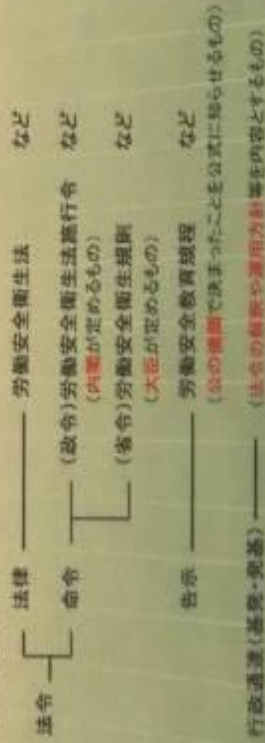 法令
法律 労働安全衛生法 など
命令 (政令)労働安全衛生法施行令 など
(内閣が定めるもの)
(省令)労働安全衛生規則 など
(大臣が定めるもの)
告示 労働安全教育規程 など
(公の機関で決まったことを公式に知らせるもの)
行政通達(基発・発基) (法令の解釈や運用方針等を内容とするもの)